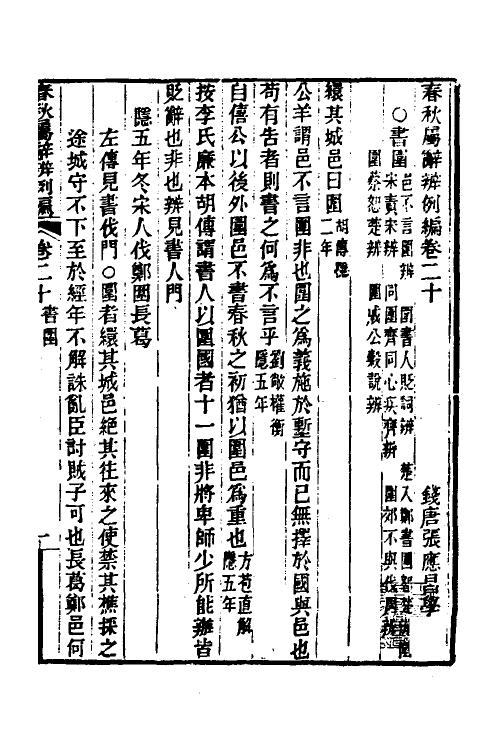 春秋屬辭辨例編卷二十
錢唐張應昌學
○書圍
邑不言圍辨 圍書人貶詞辨 楚入鄭書圍
宋責宋辨 同圍齊同心疾齊辨 圍郊不與伐
圍蔡恕楚辨 圍成公穀說辨
繯其城邑曰圍胡傳隱二年
公羊謂邑不言圍非也圍之為義施於塹守而已無擇於國與邑也
苟有告者則書之何為不言乎劉敞權衡隱五年
自僖公以後外圍邑不書春秋之初猶以圍邑為重也方苞直解隱五年
按李氏廉本胡傳謂書人以圍國者十一圍非將卑師少所能辦皆
貶辭也非也辨見書人門
隱五年冬宋人伐鄭圍長葛
左傳見書伐門○圍者繯其城邑絕其往來之使禁其樵採之
途城守不下至於經年不解誅亂臣討賊子可也長葛鄭邑何
春秋屬辭辨例編 卷二十 書圍 一